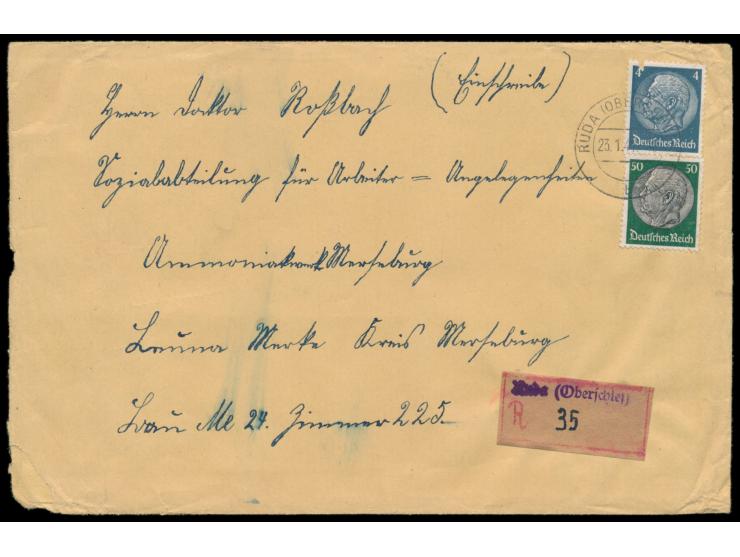 (Einschreibe)
Herrn Doktor Roßbach
Sozialabteilung für Arbeiter = Angelegenheiten
Ammoniakwerk Merseburg
Leuna Werke Kreis Merseburg
Bau Me 24. Zimmer 225.
4 4
Deutsches Reich
RUDA (OBER
23.1.4
50 50
Deutsches Reich
Ruda (Oberschles)
R 35